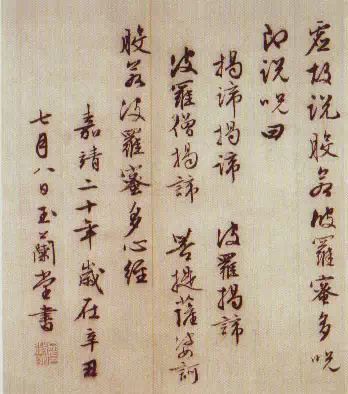 虚故说般若波羅蜜多咒
即说咒曰
揭諦揭諦 波羅揭諦
波羅僧揭諦 菩提薩婆訶
般若波羅蜜多心經
嘉靖二十年歲在辛丑
七月八日玉蘭堂書